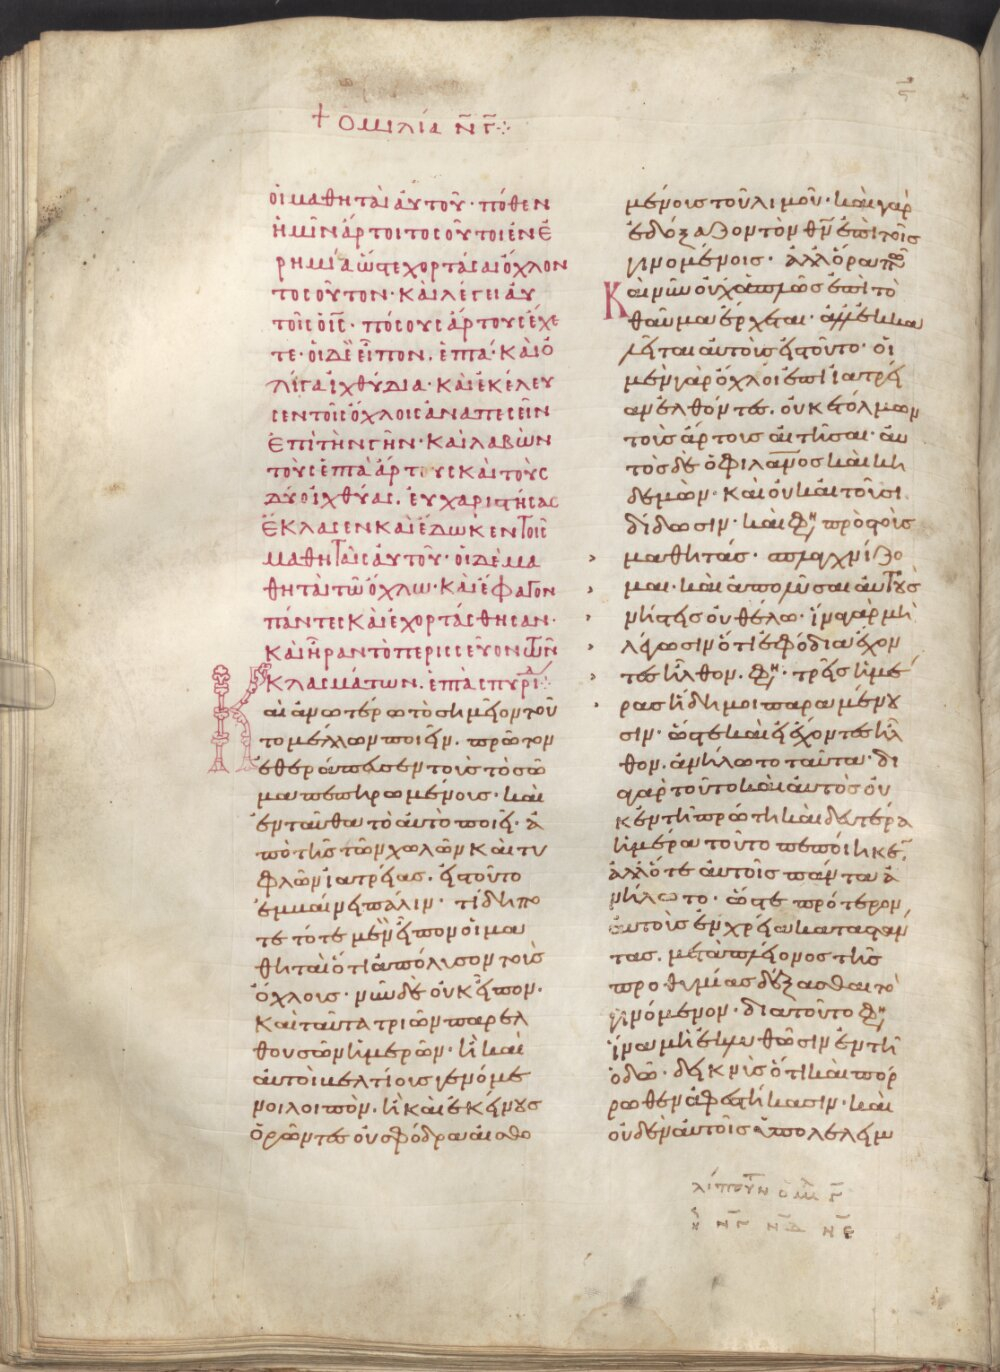 + Ὁμιλία ν̅γ̅ ⁘
οἱ μαθηταὶ αὐτοῦ· πόθεν
ἡμῖν ἄρτοι τοσοῦτοι ἐν ἐ
ρημία ὥστε χορτάσαι ὄχλον
τοσοῦτον· καὶ λέγει αὐ
τοῖς ὁ ι̅ς̅· πόσους ἄρτους ἔχε
τε· οἱ δὲ εἶπον, ἑπτά· καὶ ὀ
λίγα ἰχθύδια· καὶ ἐκέλευ
σεν τοῖς ὄχλοις ἀναπεσεῖν
ἐπὶ τὴν γῆν· καὶ λαβὼν
τοὺς ἑπτὰ ἄρτους καὶ τοὺς
δύο ἰχθύας, εὐχαριστήσας
ἔκλασεν καὶ ἔδωκεν τοῖς
μαθηταῖς αὐτοῦ· οἱ δὲ μα
θηταὶ τῶ ὄχλω· καὶ ἔφαγον
πάντες καὶ ἐχορτάσθησαν·
καὶ ἦραν τὸ περισσεῦον τῶν
κλασμάτων, ἑπτὰ σπυρίδ
Καὶ ἀνωτέρω τὸ σημεῖον τοῦ
το μέλλων ποιεῖν, πρῶτον
ἐθεράπευσεν τοὺς τὸ σῶ
μα πεπηρωμένους· καὶ
ἐνταῦθα τὸ αὐτὸ ποιεῖ· ἀ
πὸ τῆς τῶν χωλῶν καὶ τυ
φλῶν ἰατρείας, εἰς τοῦτο
ἐμβαίνει πάλιν· τί δήπο
τε τότε μὲν εἶπον οἱ μα
θηταὶ ὅτι ἀπόλυσον τοὺς
ὄχλους· νῦν δὲ οὐκ εἶπον·
καὶ ταῦτα τριῶν παρελ
θουσῶν ἡμερῶν· ἢ καὶ
αὐτοὶ βελτίους γενόμε
νοι λοιπὸν, ἢ καὶ ἐκείνους
ὁρῶντες οὐ σφόδρα αἰσθο
μένους τοῦ λιμοῦ· καὶ γὰρ
ἐδόξαζον τὸν θ̅ν̅ ἐπὶ τοῖς
γινομένοις· ἀλλ' ὅρα πῶς
Καὶ νῦν οὐχ ἁπλῶς ἐπὶ τὸ
θαῦμα ἔρχεται· ἀλλ' ἐκκα
λεῖται αὐτοὺς εἰς τοῦτο· οἱ
μὲν γὰρ ὄχλοι ἐπὶ ἰατρεία
ἀνελθόντες, οὐκ ἐτόλμων
τοὺς ἄρτους αἰτῆσαι· αὐ
τὸς δὲ ὁ φιλα̅ν̅ος καὶ κη
δεμὼν· καὶ οὐκ αἰτοῦσι
δίδωσιν· καὶ φη, πρὸς τοὺς
μαθητάς· σπλαγχνίζο
μαι· καὶ ἀπολῦσαι αὐτοὺς
νήστεις οὐ θέλω· ἵνα γὰρ μὴ
λέγωσιν ὅτι ἐφόδια ἔχον
τες ἦλθον, φη· τρεῖς ἡμέ
ρας ἤδη μοι παραμένου
σιν· ὥστε καὶ εἰ ἔχοντες ἦλ
θον, ἀνήλωτο ταῦτα· δι
α γὰρ τοῦτο καὶ αὐτὸς οὐ
κ ἐν τῆ πρώτη καὶ δευτέρα
ἡμέρα τοῦτο πεποίηκεν,
ἀλλ' ὅτε αὐτοῖς πάντα ἀ
νήλωτο· ὥστε πρότερον,
αὐτοὺς ἐν χρεία καταστάν
τας, μετὰ πλείονος τῆς
προθυμίας δέξασθαι τὸ
γινόμενον· διὰ τοῦτο φη,
ἵνα μὴ ἐκλυθῶσιν ἐν τῆ
ὁδῶ· δεικνὺς ὅτι καὶ πόρ
ρωθεν ἀφεστήκασιν· καὶ
οὐδὲν αὐτοῖς ὑπολελειμ